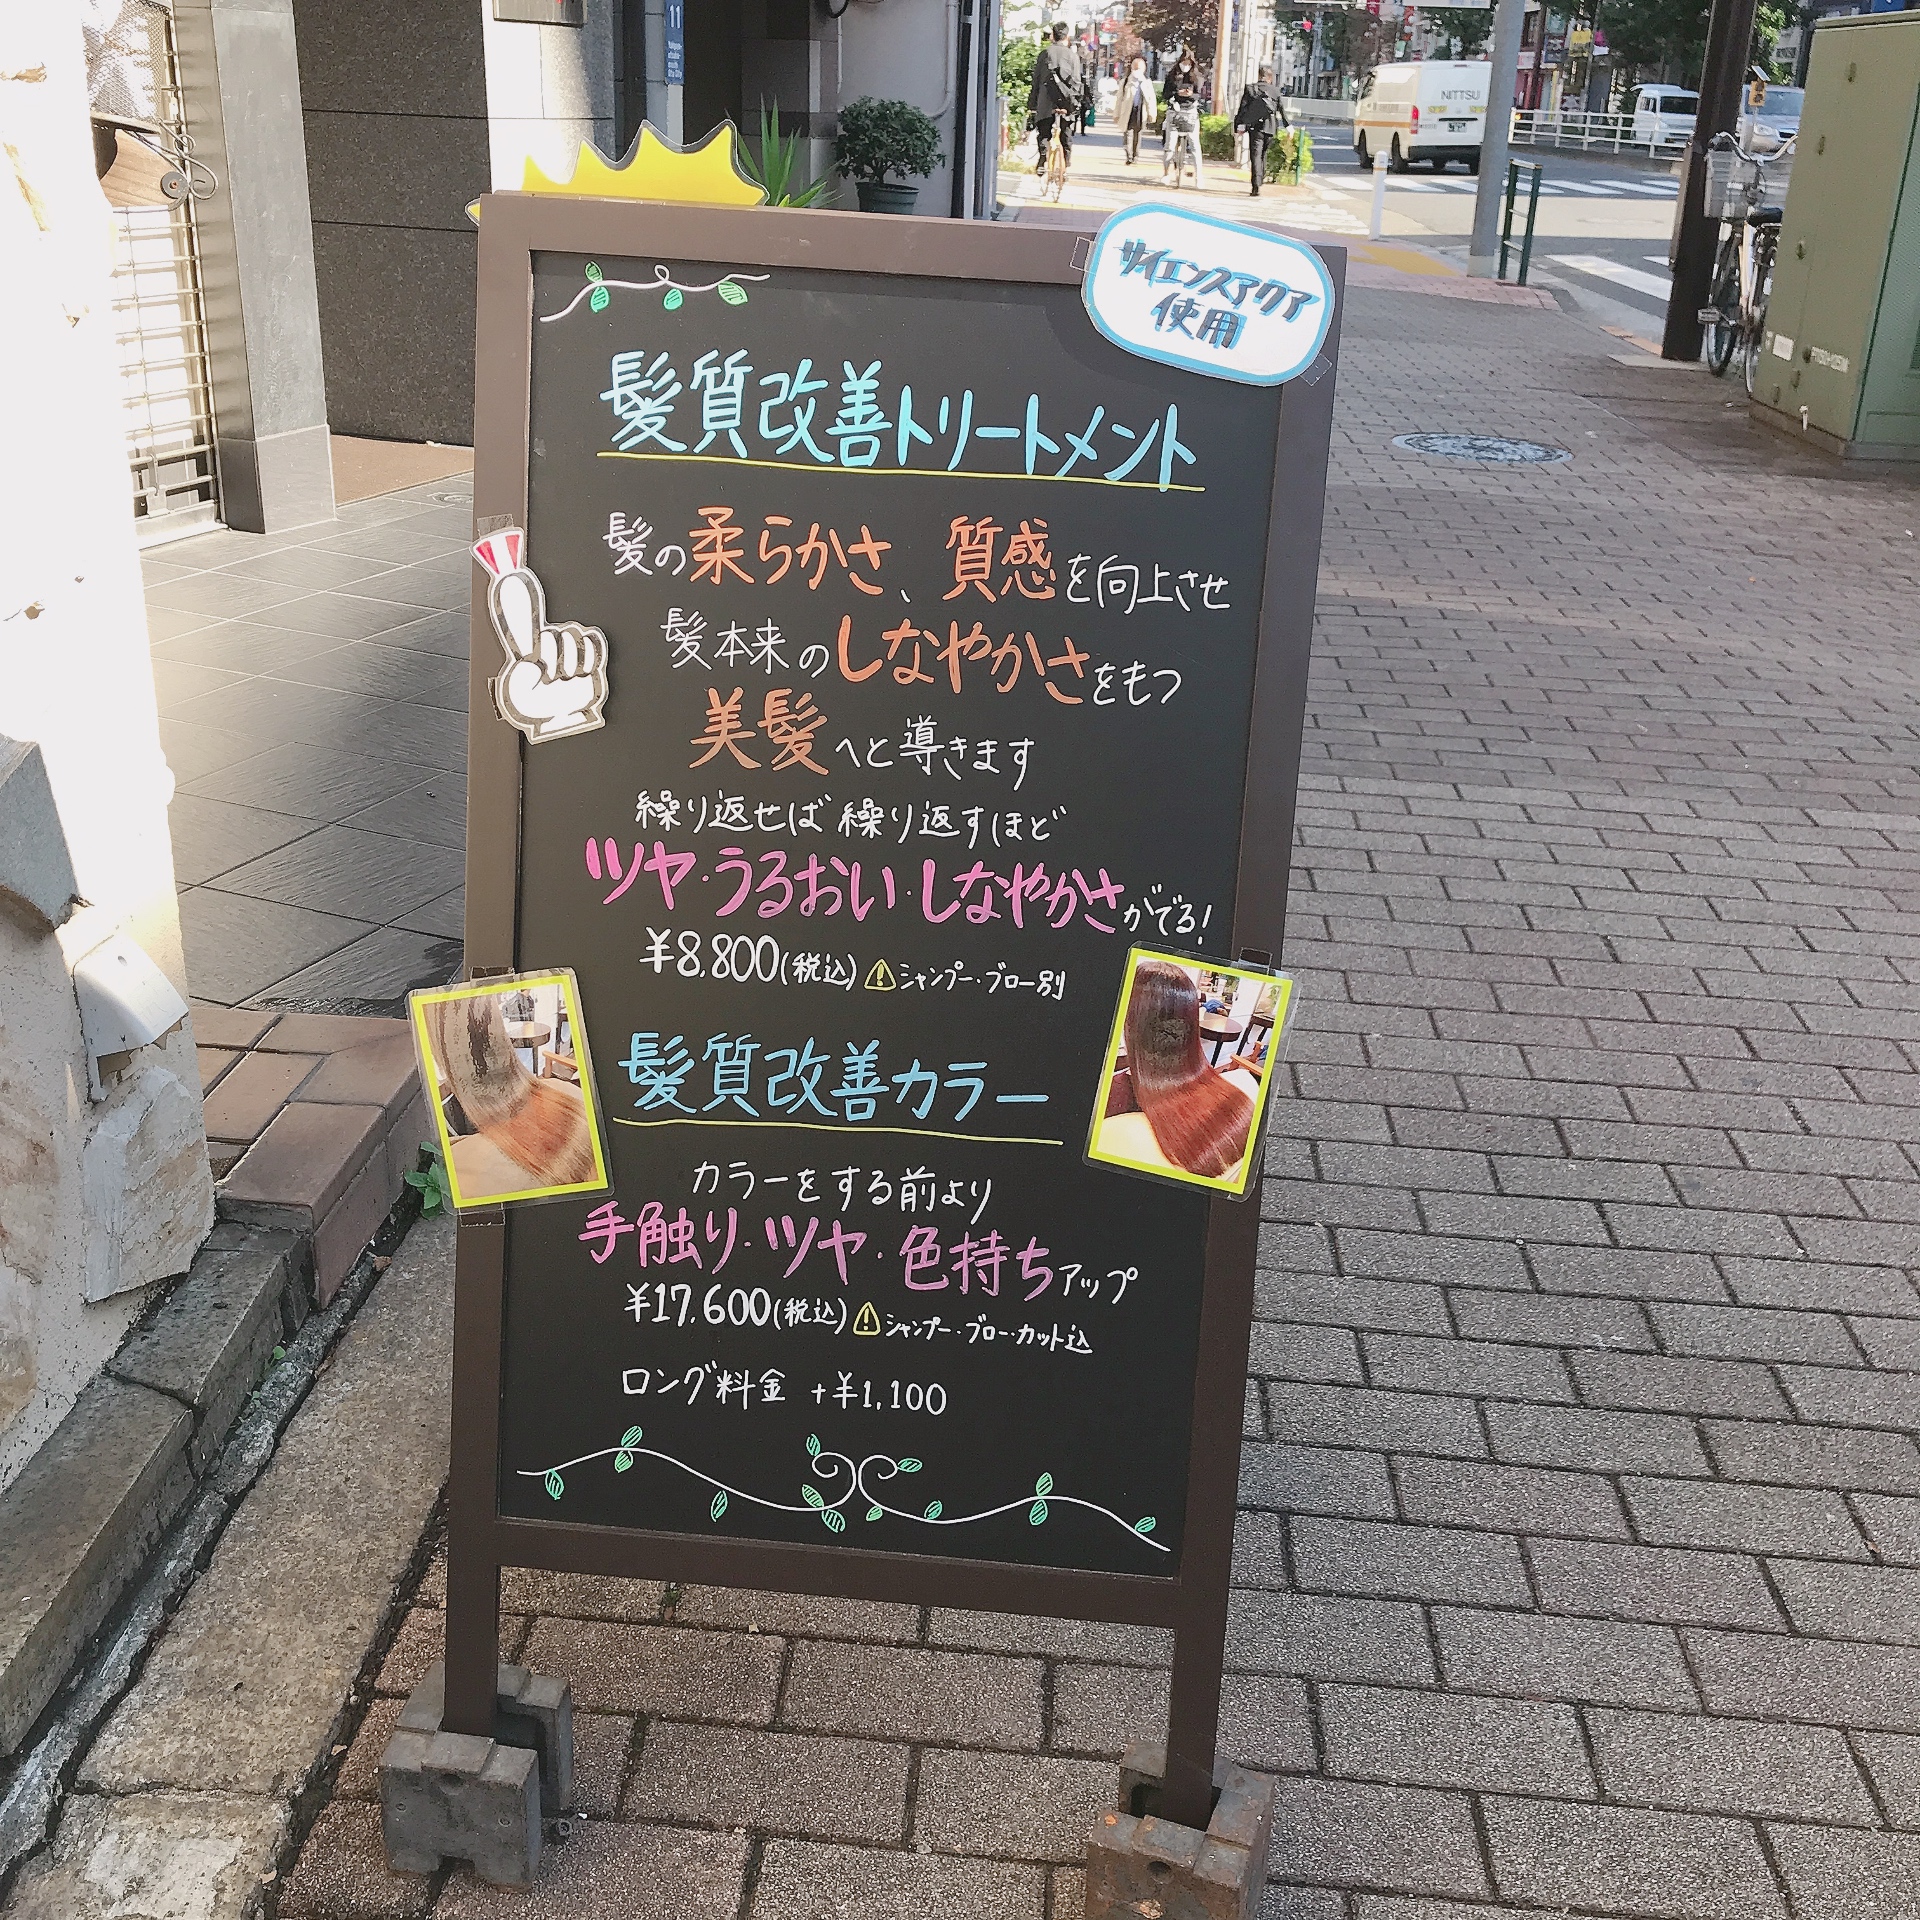 サイエンスアクア
使用
髪質改善トリートメント
髪の柔らかさ、質感を向上させ
髪本来のしなやかさをもつ
美髪へと導きます
繰り返せば繰り返すほど
ツヤ・うるおい・しなやかさがでる!
¥8,800(税込) シャンプー・ブロー別
髪質改善カラー
カラーをする前より
手触り・ツヤ・色持ちアップ
¥17,600(税込) シャンプー・ブロー・カット込
ロング料金 +¥1,100
NITTSU
11